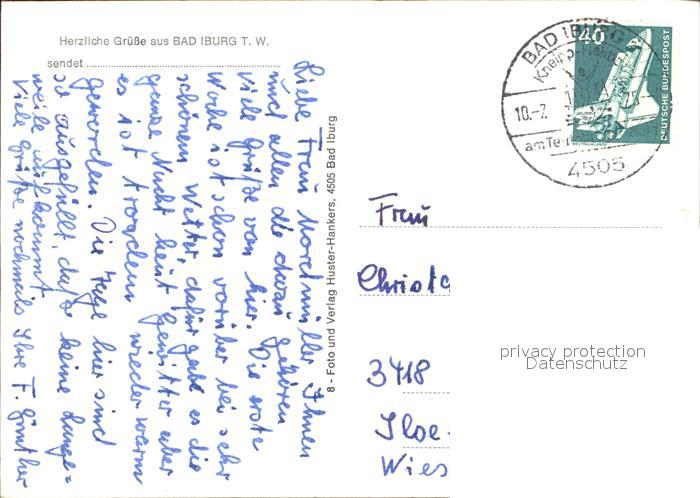 Herzliche Grüße aus BAD IBURG T. W.
sendet
Liebe Frau Nordmüller Ihnen
und allen die dazu gehören
viele Grüße von hier. Die erste
Woche ist schon vorüber bei sehr
schönem Wetter, dafür gab es die
ganze Nacht heut Gewitter aber
es ist trotzdem wieder warm
geworden. Die Tage hier sind
so ausgefüllt, daß keine Lange-
weile aufkommt
Viele Grüße nochmals Ihre F. Günther
8 - Foto und Verlag Huster-Hankers, 4505 Bad Iburg
BAD IBURG
10.-7.
am Te
4505
40
DEUTSCHE BUNDESPOST
Frau
Christ
3418
Wies
privacy protection
Datenschutz